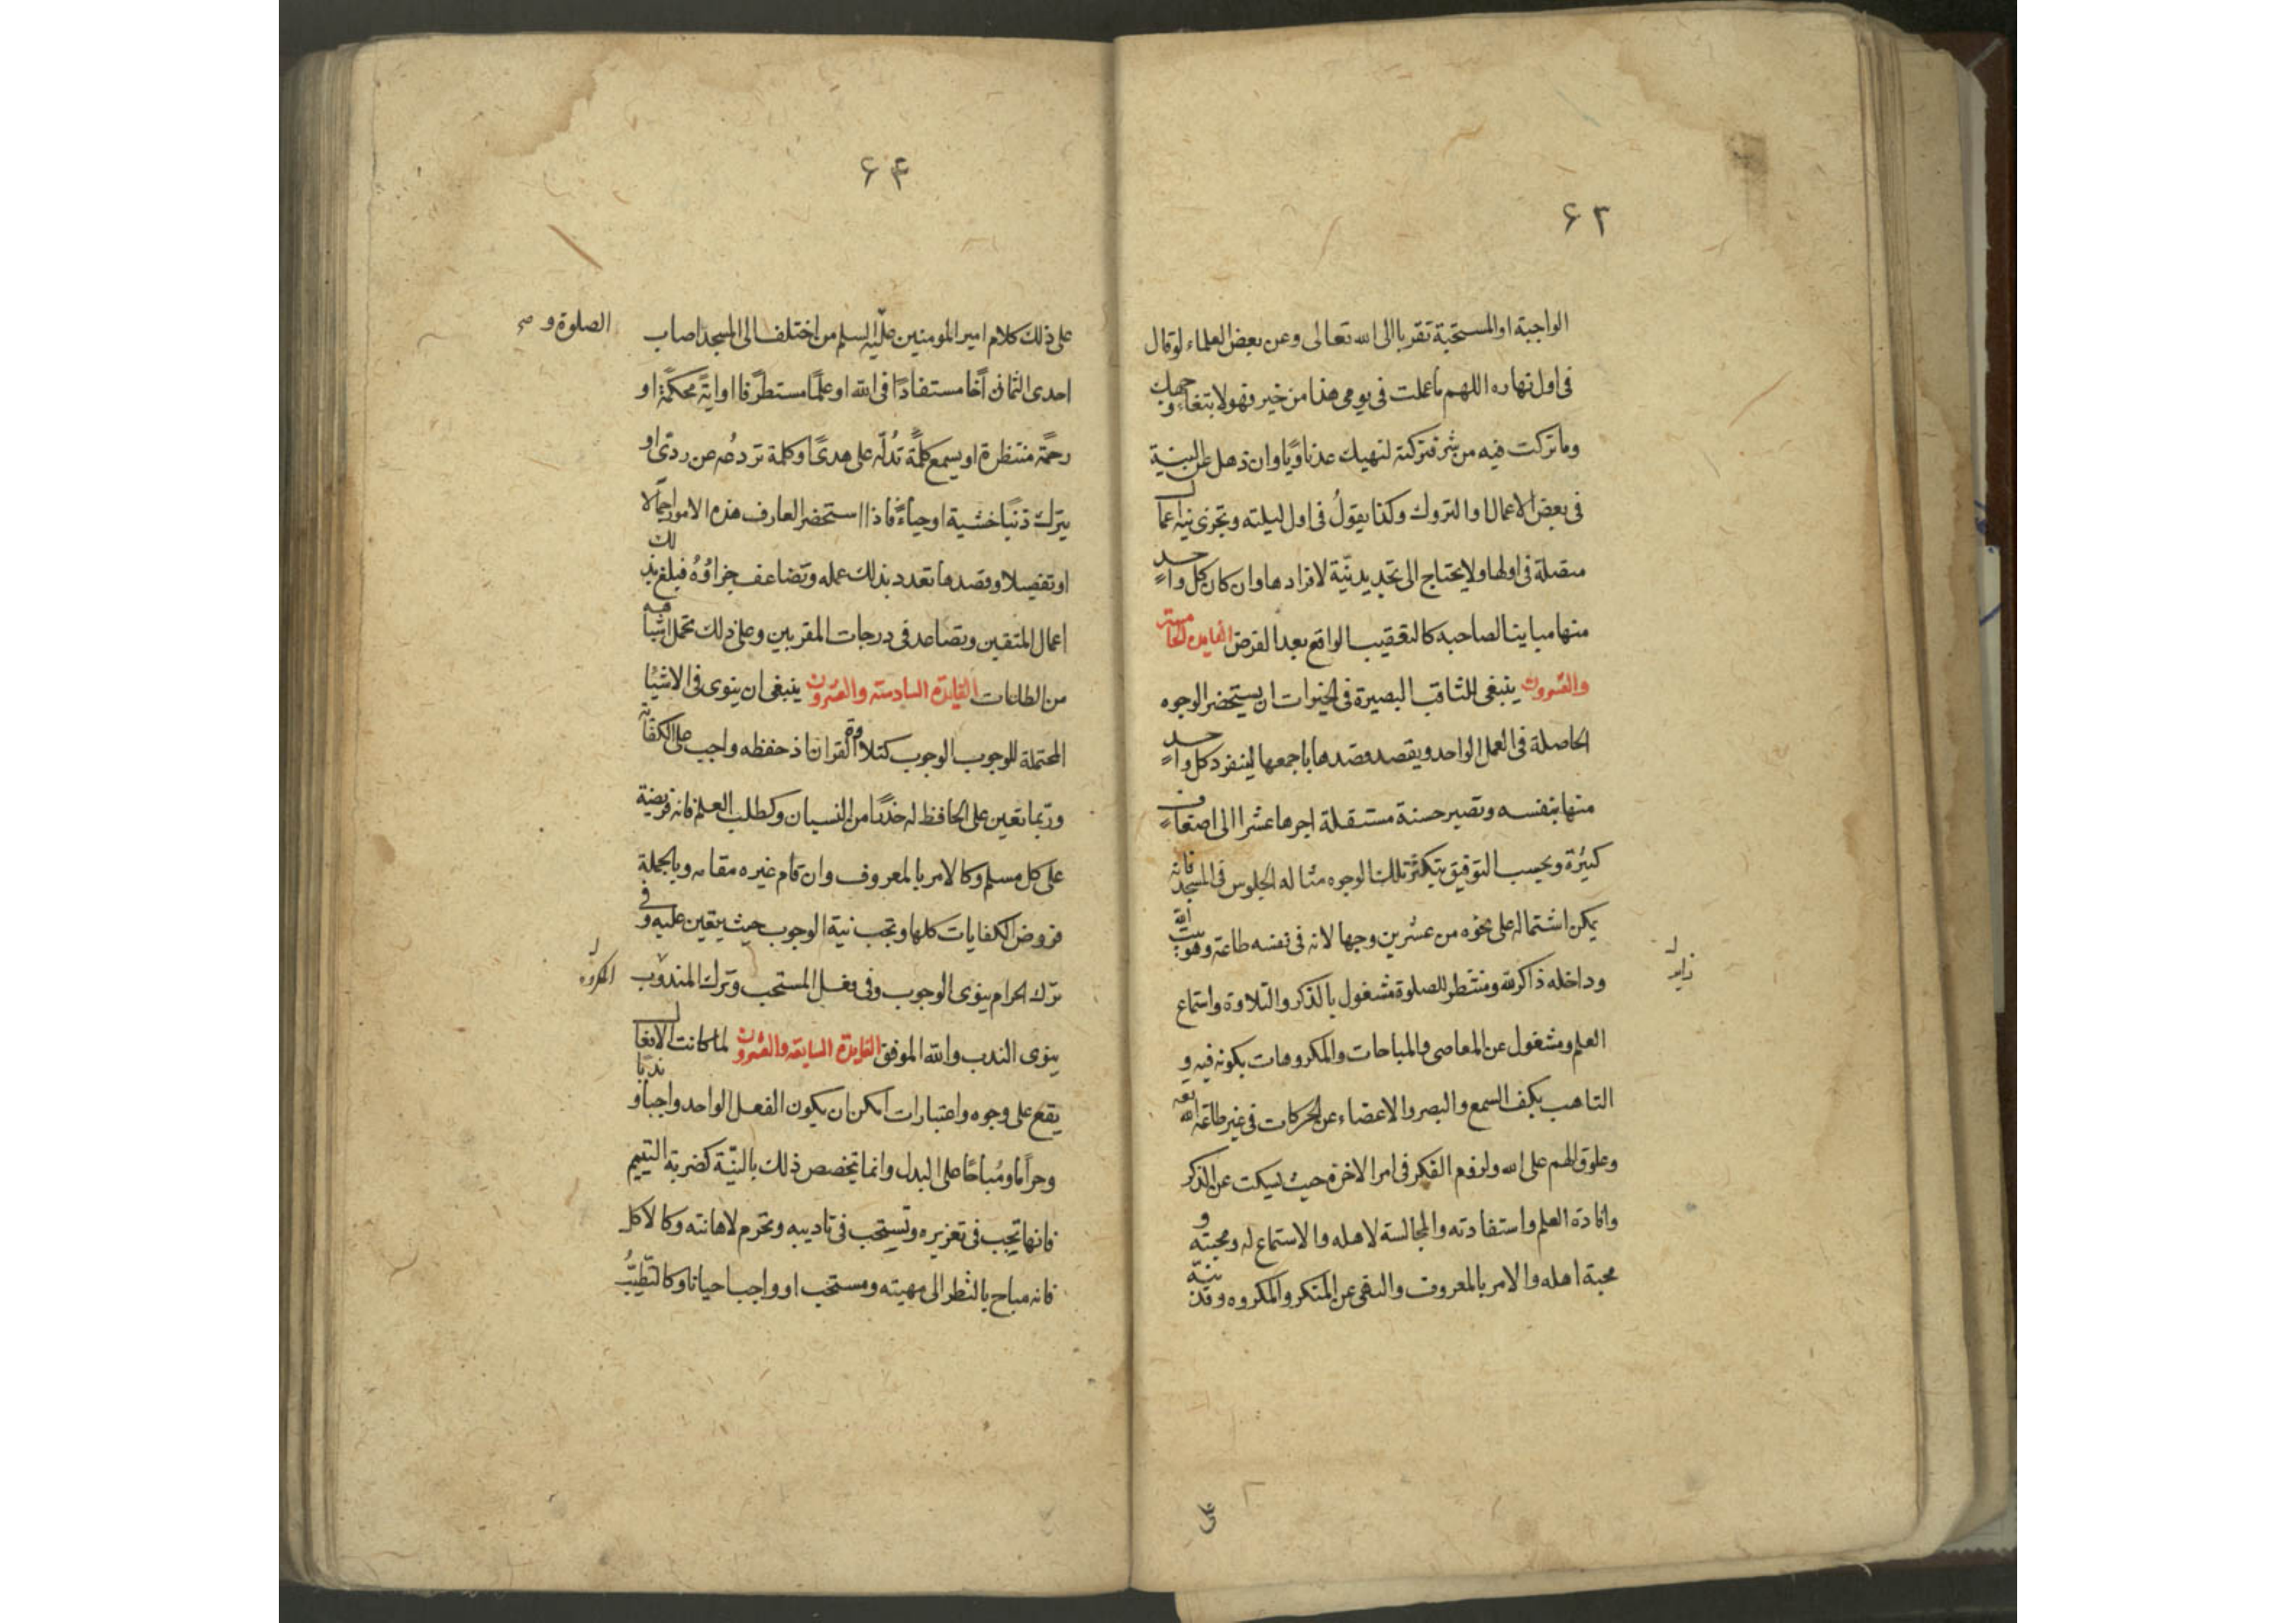 ۶۳
الواجبة او المستحبة تقربا الى الله تعالى وعن بعض العلماء لو قال
فى اول نهاره اللهم ما عملت فى يومى هذا من خير فهو لابتغاء وجهك
وما تركت فيه من شر فتركته لنهيك عد ناويا وان ذهل عن النية
فى بعض الاعمال او التروك وكذا يقولُ فى اول ليلته وتجزى نية اعمال
متصلة فى اولها ولا يحتاج الى تجديد نيّة لافرادها وان كان كل واحد
منها مباينا لصاحبه كالتعقيب الواقع بعد الفرض الفايدة الخامسة
والعشرون ينبغى للثاقب البصيرة فى الخيرات ان يستحضر الوجوه
الحاصلة فى العمل الواحد ويقصد قصدها باجمعها لينفرد كل واحد
منها بنفسه وتصير حسنة مستقلة اجرها عشرا الى اضعاف
كثيرة وبحسب التوفيق يتكثر تلك الوجوه مثاله الجلوس فى المسجد فانه
يمكن اشتماله على نحوه من عشرين وجها لانه فى نفسه طاعة وهو بيت الله
وداخله ذاكر لله ومنتظر للصلوة مشغول بالذكر والتلاوة واستماع
زاير
العلم ومشغول عن المعاصى والمباحات والمكروهات بكونه فيه و
التاهب بكف السمع والبصر والاعضاء عن الحركات فى غير طاعة الله تعه
وعلوق الهم على الله ولزوم الفكر فى امر الاخرة حيث ليكت عن الذكر
وافادة العلم واستفادته والمجالسة لاهله والاستماع له ومحبته و
محبة اهله والامر بالمعروف والنهى عن المنكر والمكروه وقد نبّه
على
۶۴
على ذلك كلام امير المومنين عليه السلم من اختلف الى المسجد اصاب
الصلوة و صح
احدى الثمان اخًا مستفادًا فى الله او علمًا مستطرفا او ايةً محكمةً او
رحمةً منتظرة او يسمع كلمةً تدُلّه على هدىً او كلمة تردعُه عن ردىً او
يترك ذنبًا خشية او حياءً فاذا استحضر العارف هذه الامور اجمالا
او تفصيلا وقصدها تعدد بذلك عمله وتضاعف جزاؤُهُ فبلغ بذلك
اعمال المتقين وتصاعد فى درجات المقربين وعلى ذلك تحمل اشباهه
من الطاعات الفايدة السادسة والعشرون ينبغى ان ينوى فى الاشياء
المحتملة للوجوب الوجوب كتلاوة القران اذ حفظه واجب على الكفاية
وربما تعين على الحافظ له حذرًا من النسيان وكطلب العلم فانه فريضة
على كل مسلم وكالامر بالمعروف وان قام غيره مقامه وبالجملة
فروض الكفايات كلها وتجب نية الوجوب حيث يتعين عليه وفى
ترك الحرام ينوى الوجوب وفى فعل المستحب وترك المندوب
المكروه
ينوى الندب والله الموفق الفايدة السابعة والعشرون لما كانت الافعال
يقع على وجوه واعتبارات امكن ان يكون الفعل الواحد واجبا وندبًا
وحرامًا ومُباحًا على البدل وانما تخصص ذلك بالنيّة كضربة اليتيم
فانها تجب فى تعزيره وتستحب فى تاديبه وتحرم لاهانته وكالاكل
فانه مباح بالنظر الى مهيته ومستحب او واجب احيانا وكالتطيّبُ